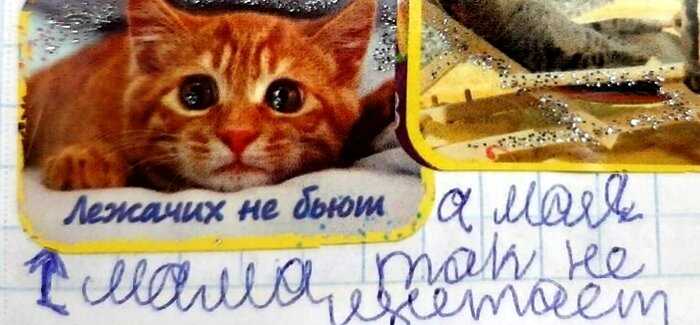 Лежачих не бьют
а моя
мама так не
считает